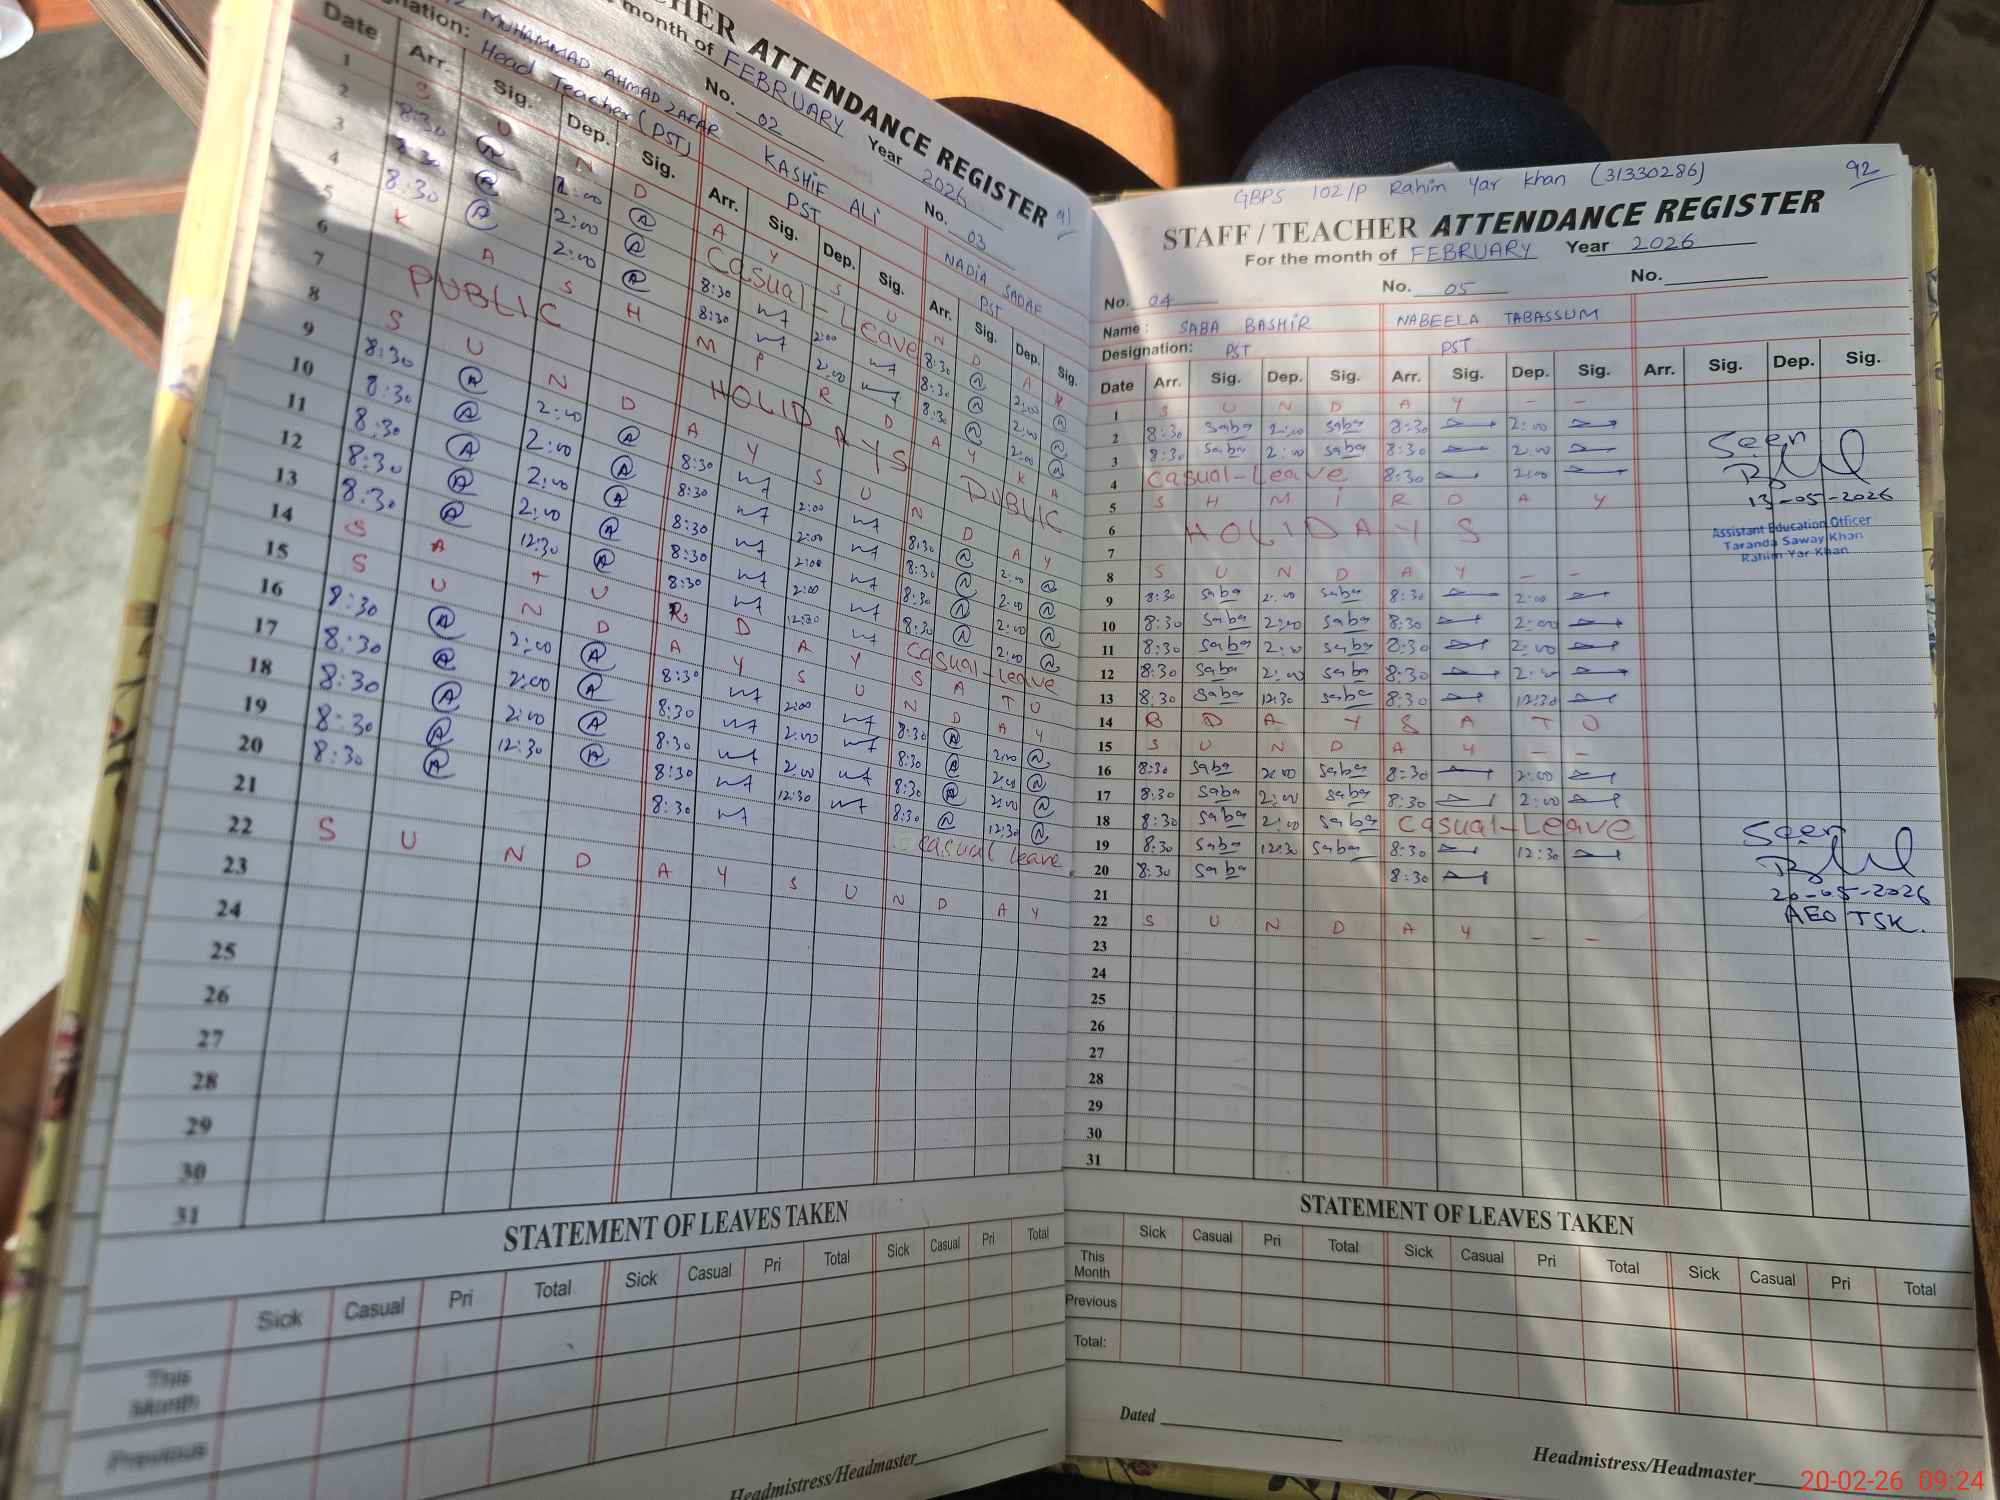 TEACHER ATTENDANCE REGISTER
month of FEBRUARY Year 2026
91
MUHAMMAD AHMAD ZAFAR No. 02 KASHIF ALI No. 03 NADIA SADAF
Head Teacher (PST) PST PST
Date Arr. Sig. Dep. Sig. Arr. Sig. Dep. Sig. Arr. Sig. Dep. Sig.
1 S U N D A Y S U N D A Y
2 8:30 2:00 Casual-Leave 8:30 2:00
3 8:30 2:00 8:30 2:00 8:30 2:00
4 8:30 2:00 8:30 2:00 8:30 2:00
5 K A S H M I R D A Y K A
6 PUBLIC HOLIDAYS PUBLIC
7
8 S U N D A Y S U N D A Y
9 8:30 2:00 8:30 2:00 8:30 2:00
10 8:30 2:00 8:30 2:00 8:30 2:00
11 8:30 2:00 8:30 2:00 8:30 2:00
12 8:30 2:00 8:30 2:00 8:30 2:00
13 8:30 12:30 8:30 12:30 Casual-Leave
14 S A T U R D A Y S A T U
15 S U N D A Y S U N D A Y
16 8:30 2:00 8:30 2:00 8:30 2:00
17 8:30 2:00 8:30 2:00 8:30 2:00
18 8:30 2:00 8:30 2:00 8:30 2:00
19 8:30 12:30 8:30 12:30 8:30 12:30
20 8:30 8:30 Casual Leave
21
22 S U N D A Y S U N D A Y
23
24
25
26
27
28
29
30
31
STATEMENT OF LEAVES TAKEN
Sick Casual Pri Total Sick Casual Pri Total Sick Casual Pri Total
This Month
Previous
Headmistress/Headmaster
GBPS 102/P Rahim Yar Khan (31330286) 92
STAFF / TEACHER ATTENDANCE REGISTER
For the month of FEBRUARY Year 2026
No. 04 No. 05 No.
Name: SABA BASHIR NABEELA TABASSUM
Designation: PST PST
Date Arr. Sig. Dep. Sig. Arr. Sig. Dep. Sig. Arr. Sig. Dep. Sig.
1 S U N D A Y - -
2 8:30 Saba 2:00 Saba 8:30 2:00
3 8:30 Saba 2:00 Saba 8:30 2:00
4 Casual-Leave 8:30 2:00
5 S H M i R D A Y
6 HOLIDAYS
7
8 S U N D A Y - -
9 8:30 Saba 2:00 Saba 8:30 2:00
10 8:30 Saba 2:00 Saba 8:30 2:00
11 8:30 Saba 2:00 Saba 8:30 2:00
12 8:30 Saba 2:00 Saba 8:30 2:00
13 8:30 Saba 12:30 Saba 8:30 12:30
14 R D A Y S A T U
15 S U N D A Y - -
16 8:30 Saba 2:00 Saba 8:30 2:00
17 8:30 Saba 2:00 Saba 8:30 2:00
18 8:30 Saba 2:00 Saba Casual-Leave
19 8:30 Saba 12:30 Saba 8:30 12:30
20 8:30 Saba 8:30
21
22 S U N D A Y - -
23
24
25
26
27
28
29
30
31
Seen
13-05-2026
Assistant Education Officer
Taranda Saway Khan
Rahim Yar Khan
Seen
20-05-2026
AEO TSK.
STATEMENT OF LEAVES TAKEN
Sick Casual Pri Total Sick Casual Pri Total Sick Casual Pri Total
This Month
Previous
Total:
Dated
Headmistress/Headmaster
20-02-26 09:24